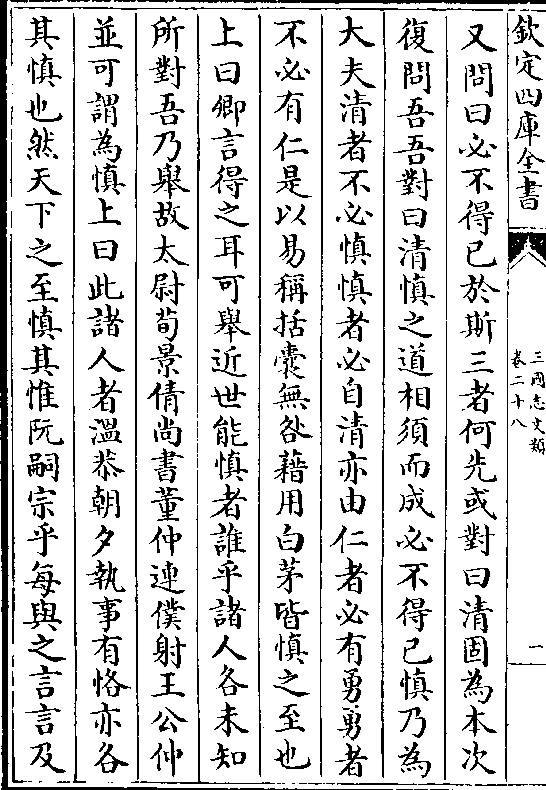 欽定四庫全書
三國志文類
卷二十八
一
又問曰必不得已於斯三者何先或對曰清固為本次
復問吾吾對曰清慎之道相須而成必不得已慎乃為
大夫清者不必慎慎者必自清亦由仁者必有勇勇者
不必有仁是以易稱括囊無咎藉用白茅皆慎之至也
上曰卿言得之耳可舉近世能慎者誰乎諸人各未知
所對吾乃舉故太尉荀景倩尚書董仲連僕射王公仲
並可謂為慎上曰此諸人者溫恭朝夕執事有恪亦各
其慎也然天下之至慎其惟阮嗣宗乎每與之言言及